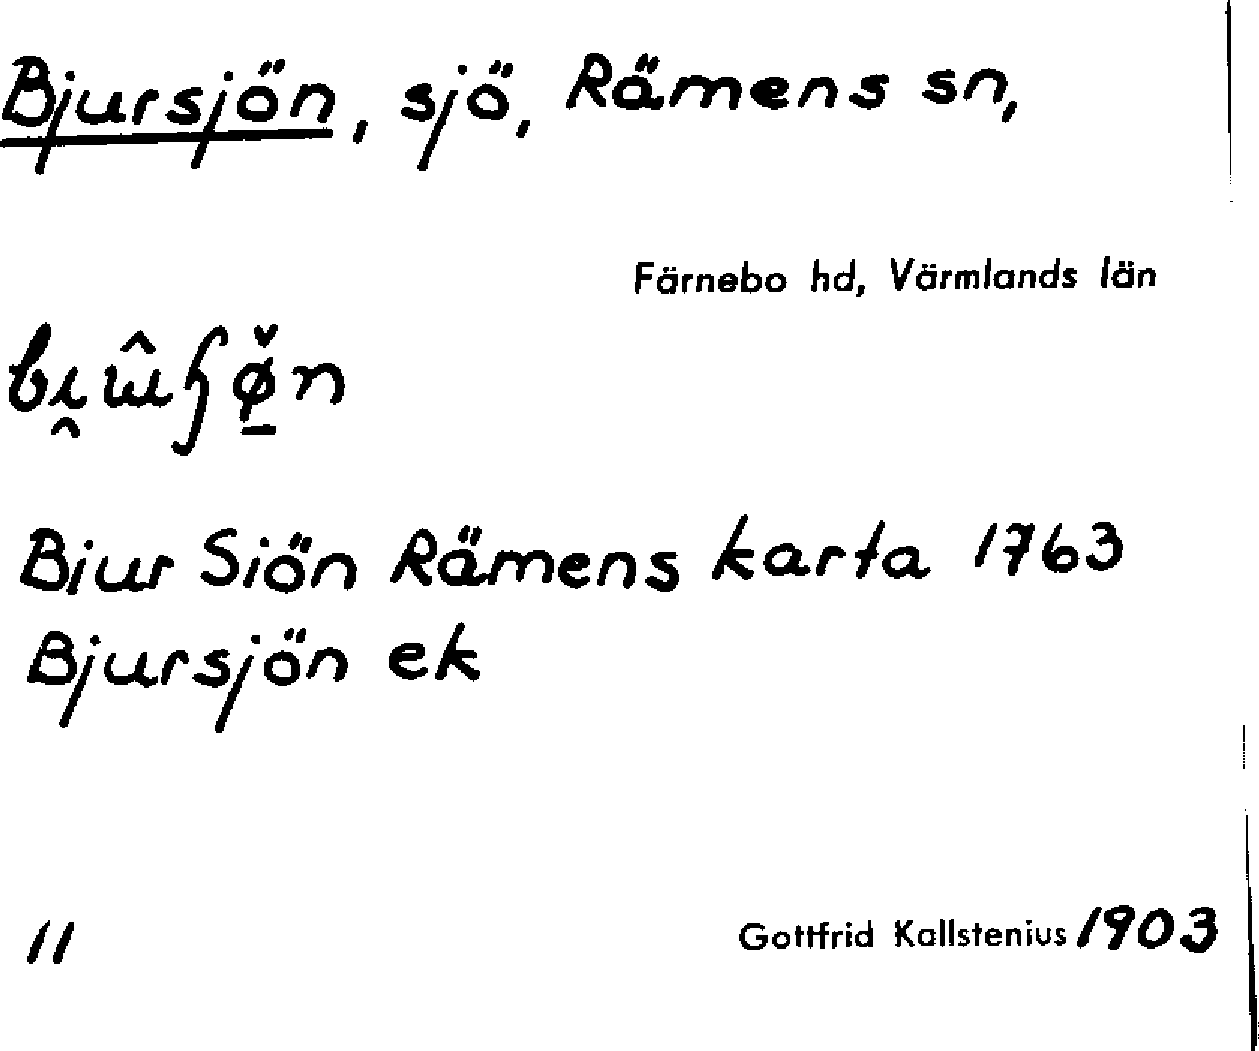 Bjursjön, sjö, Rämens sn,
Färnebo hd, Värmlands län
Biur Siön Rämens karta 1763
Bjursjön ek
11
Gottfrid Kallstenius 1903